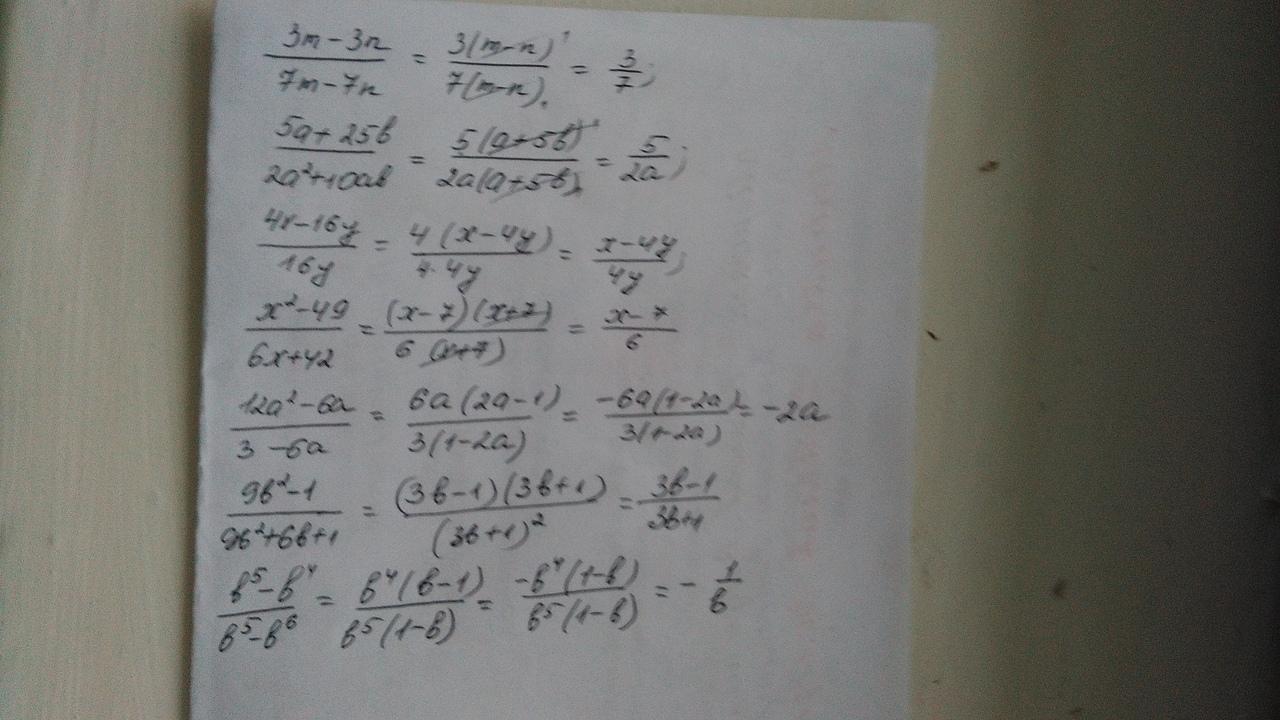 (3m-3n)/(7m-7n) = 3(m-n)¹/7(m-n)₁ = 3/7;
(5a+25b)/(2a²+10ab) = 5(a+5b)¹/2a(a+5b)₁ = 5/2a;
(4x-16y)/16y = 4(x-4y)/4·4y = (x-4y)/4y;
(x²-49)/(6x+42) = (x-7)(x+7)/6(x+7) = (x-7)/6
(12a²-6a)/(3-6a) = 6a(2a-1)/3(1-2a) = -6a(1-2a)/3(1-2a) = -2a
(9b²-1)/(9b²+6b+1) = (3b-1)(3b+1)/(3b+1)² = (3b-1)/(3b+1)
(b⁵-b⁴)/(b⁵-b⁶) = b⁴(b-1)/b⁵(1-b) = -b⁴(1-b)/b⁵(1-b) = -1/b